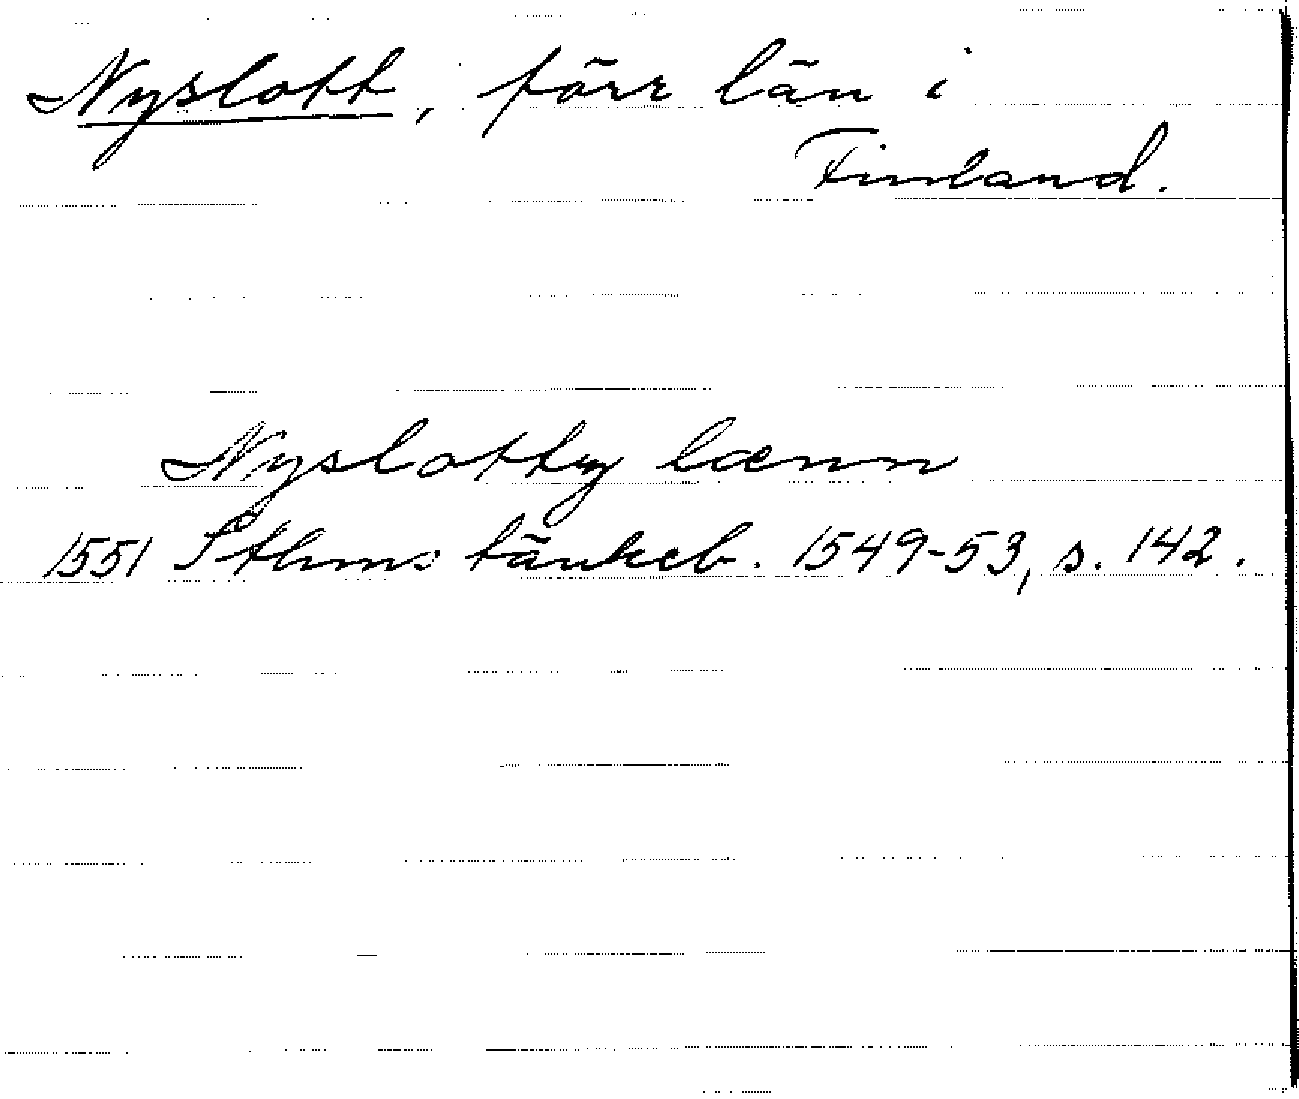 Nyslott, förr län i
Finland.
Nyslotty lænn
1551 Sthms tänkeb. 1549-53, s. 142.